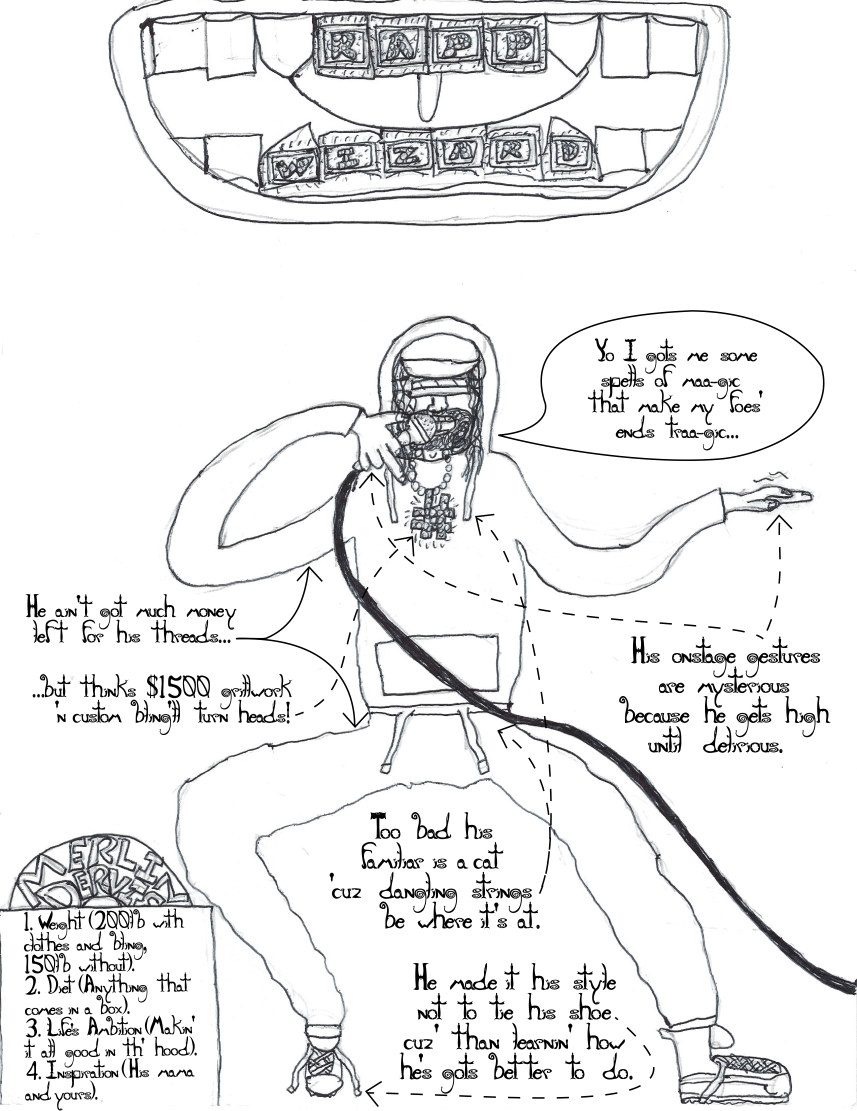 RAPP
WIZARD
Yo I gots me some
spells of maa-gic
that make my foes'
ends traa-gic...
He ain't got much money
left for his threads...
...but thinks $1500 grillwork
'n custom bling'll turn heads!
His onstage gestures
are mysterious
because he gets high
until delirious.
Too bad his
familiar is a cat
'cuz dangling strings
be where it's at.
He made it his style
not to tie his shoe.
cuz' than learnin' how
he's gots better to do.
MERLIN
1. Weight (200lb with
clothes and bling,
150lb without).
2. Diet (Anything that
comes in a box).
3. Life's Ambition (Makin'
it all good in th' hood).
4. Inspiration (His mama
and yours).